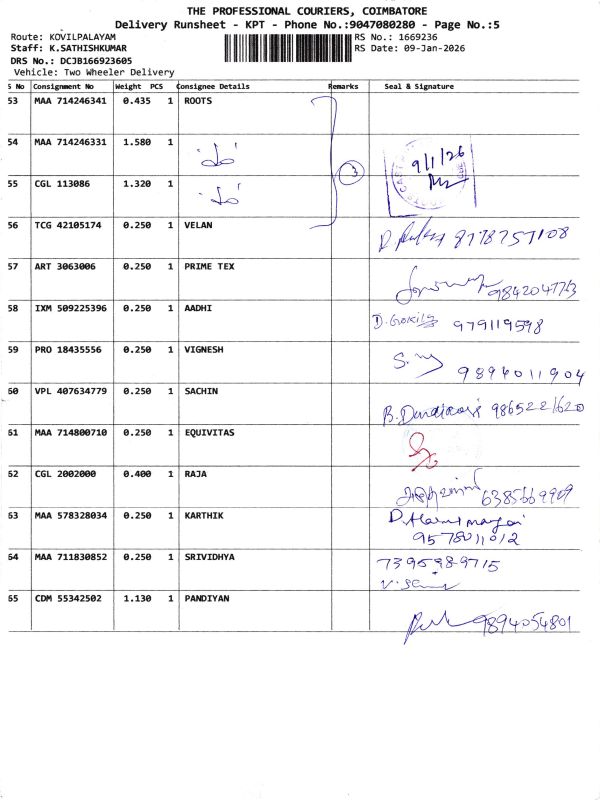 THE PROFESSIONAL COURIERS, COIMBATORE
Delivery Runsheet - KPT - Phone No.:9047080280 - Page No.:5
Route: KOVILPALAYAM RS No.: 1669236
Staff: K.SATHISHKUMAR RS Date: 09-Jan-2026
DRS No.: DCJB166923605
Vehicle: Two Wheeler Delivery
S No Consignment No Weight PCS Consignee Details Remarks Seal & Signature
53 MAA 714246341 0.435 1 ROOTS
54 MAA 714246331 1.580 1
9/1/26
3
55 CGL 113086 1.320 1
56 TCG 42105174 0.250 1 VELAN
8778757108
57 ART 3063006 0.250 1 PRIME TEX
58 IXM 509225396 0.250 1 AADHI
D. Gokila 979119598
59 PRO 18435556 0.250 1 VIGNESH
9894011904
60 VPL 407634779 0.250 1 SACHIN
9865221620
61 MAA 714800710 0.250 1 EQUIVITAS
62 CGL 2002000 0.400 1 RAJA
6385669909
63 MAA 578328034 0.250 1 KARTHIK
9578011012
64 MAA 711830852 0.250 1 SRIVIDHYA
7395989715
65 CDM 55342502 1.130 1 PANDIYAN
9894054801